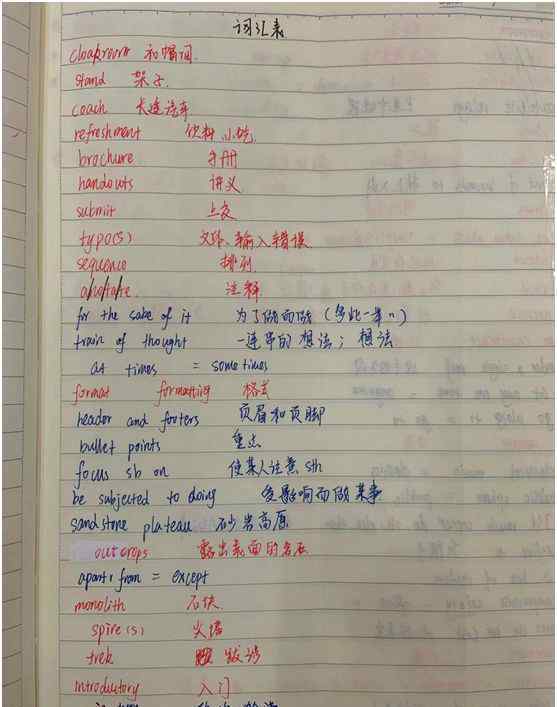 词汇表
cloakroom 衣帽间
stand 架子
coach 长途汽车
refreshment 饮料 小吃
brochure 手册
handouts 讲义
submit 上交
typo(s) 文件、输入错误
sequence 排列
annotate 注释
for the sake of it 为了做而做（多此一举"）
train of thought 一连串的想法；想法
at times = sometimes
format formatting 格式
header and footers 页眉和页脚
bullet points 重点
focus sb on 使某人注意sth
be subjected to doing 受影响而做某事
sandstone plateau 石少岩高原
outcrops 露出表面的岩石
apart from = except
monolith 石块
spire(s) 尖塔
trek 跋涉
introductory 入门